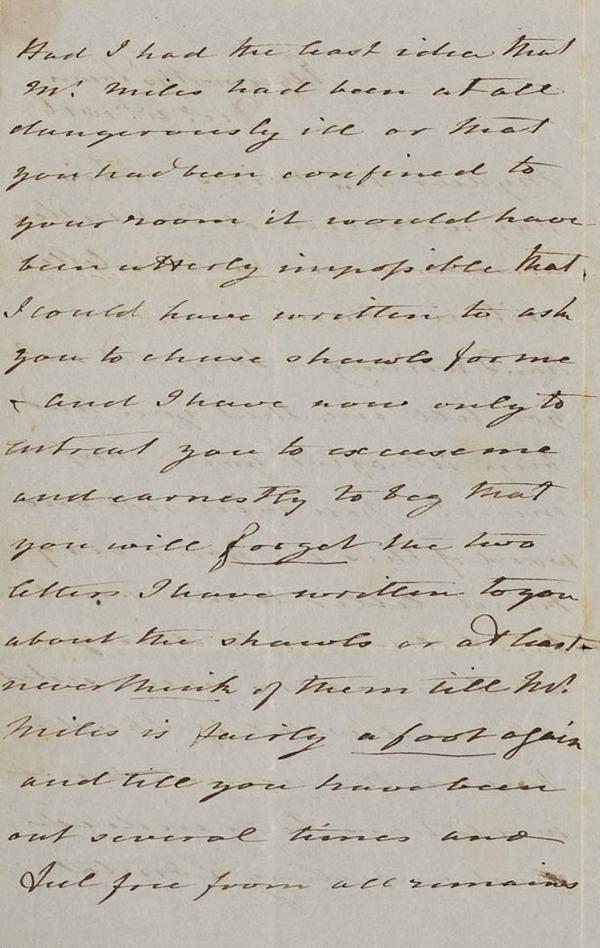 Had I had the least idea that
Mr. Miles had been at all
dangerously ill or that
you had been confined to
your room it would have
been utterly impossible that
I could have written to ask
you to chuse shawls for me
- and I have now only to
intreat you to excuse me
and earnestly to beg that
you will forget the two
letters I have written to you
about the shawls or at least
never think of them till Mr.
Miles is fairly a foot again
and till you have been
out several times and
feel free from all remains